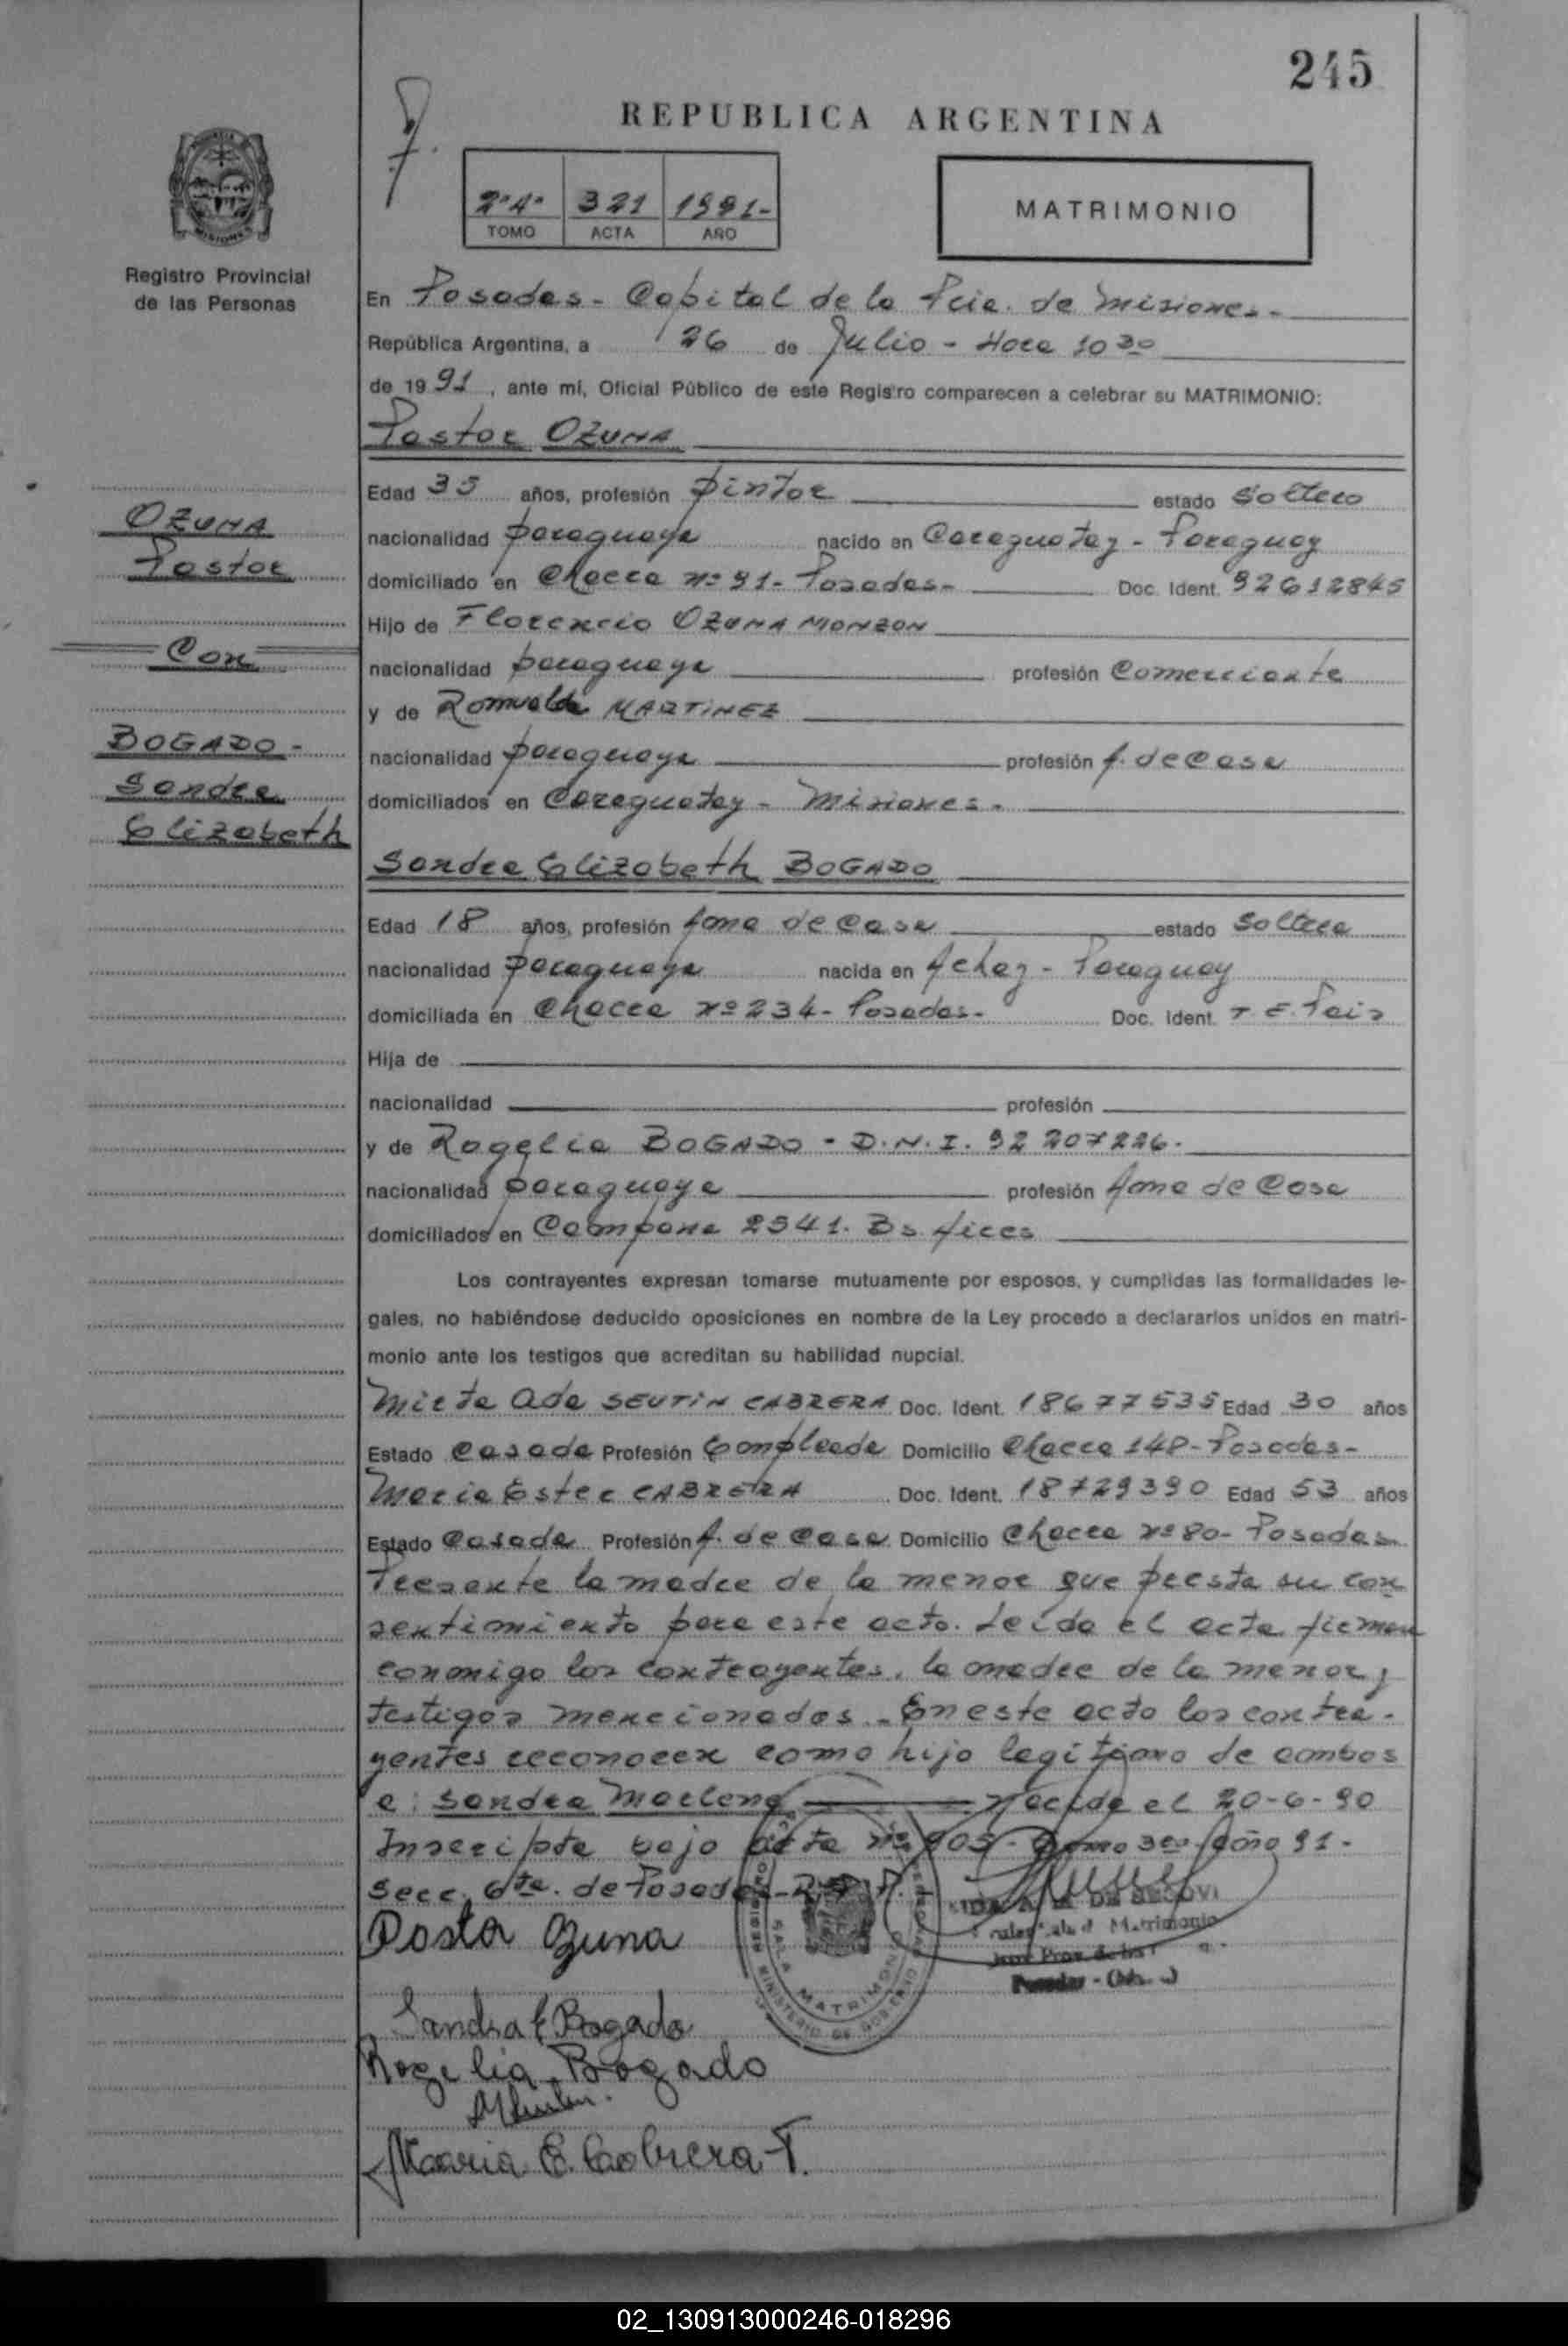 245
REPUBLICA ARGENTINA
2º4º 321 1991-
TOMO ACTA AÑO
MATRIMONIO
MISIONES
Registro Provincial
de las Personas
En Posadas - Capital de la Pcia. de Misiones.-
República Argentina, a 26 de Julio - Hora 10 30
de 19 91, ante mí, Oficial Público de este Registro comparecen a celebrar su MATRIMONIO:
Pastor OZUNA
Edad 35 años, profesión pintor estado Soltero
OZUNA
nacionalidad paraguaya nacido en Caraguatay - Paraguay
Pastor
domiciliado en Chacra nº 91 - Posadas - Doc. Ident. 92612845
Hijo de Florencio OZUNA MONZON
Con
nacionalidad paraguaya profesión Comerciante
y de Romualda MARTINEZ
BOGADO -
nacionalidad paraguaya profesión A. de Casa
Sandra
domiciliados en Caraguatay - Misiones -
Elizabeth
Sandra Elizabeth BOGADO
Edad 18 años, profesión Ama de Casa estado Soltera
nacionalidad paraguaya nacida en Achay - Paraguay
domiciliada en Chacra nº 234 - Posadas - Doc. Ident.
Hija de
nacionalidad profesión
y de Rogelia BOGADO - D.N.I. 92 207226.
nacionalidad paraguaya profesión Ama de Casa
domiciliados en Campana 2541. Bs. Aires
Los contrayentes expresan tomarse mutuamente por esposos, y cumplidas las formalidades le-
gales, no habiéndose deducido oposiciones en nombre de la Ley procedo a declararlos unidos en matri-
monio ante los testigos que acreditan su habilidad nupcial.
Mirta Ada SEUTIN CABRERA Doc. Ident. 18677535 Edad 30 años
Estado Casada Profesión Empleada Domicilio Chacra 148 - Posadas -
Maria Ester CABRERA Doc. Ident. 18729390 Edad 53 años
Estado Casada Profesión A. de Casa Domicilio Chacra nº 80 - Posadas
Presente la madre de la menor que presta su con
sentimiento para este acto. Leída el acta firman
conmigo los contrayentes, la madre de la menor y
testigos mencionados. - En este acto los contra-
yentes reconocen como hijo legítimo de ambos
a: Sandra Marlene nacida el 20-6-90
Inscripta bajo acta nº 905 - Tomo 3ro - año 91 -
Secc. 6ta. de Posadas -
Pastor Ozuna
MATRIMONIO
MINISTERIO DE GOBIERNO
Matrimonio
Sandra E Bogado
Rogelia Bogado
Maria E. Cabrera T.
02_130913000246-018296